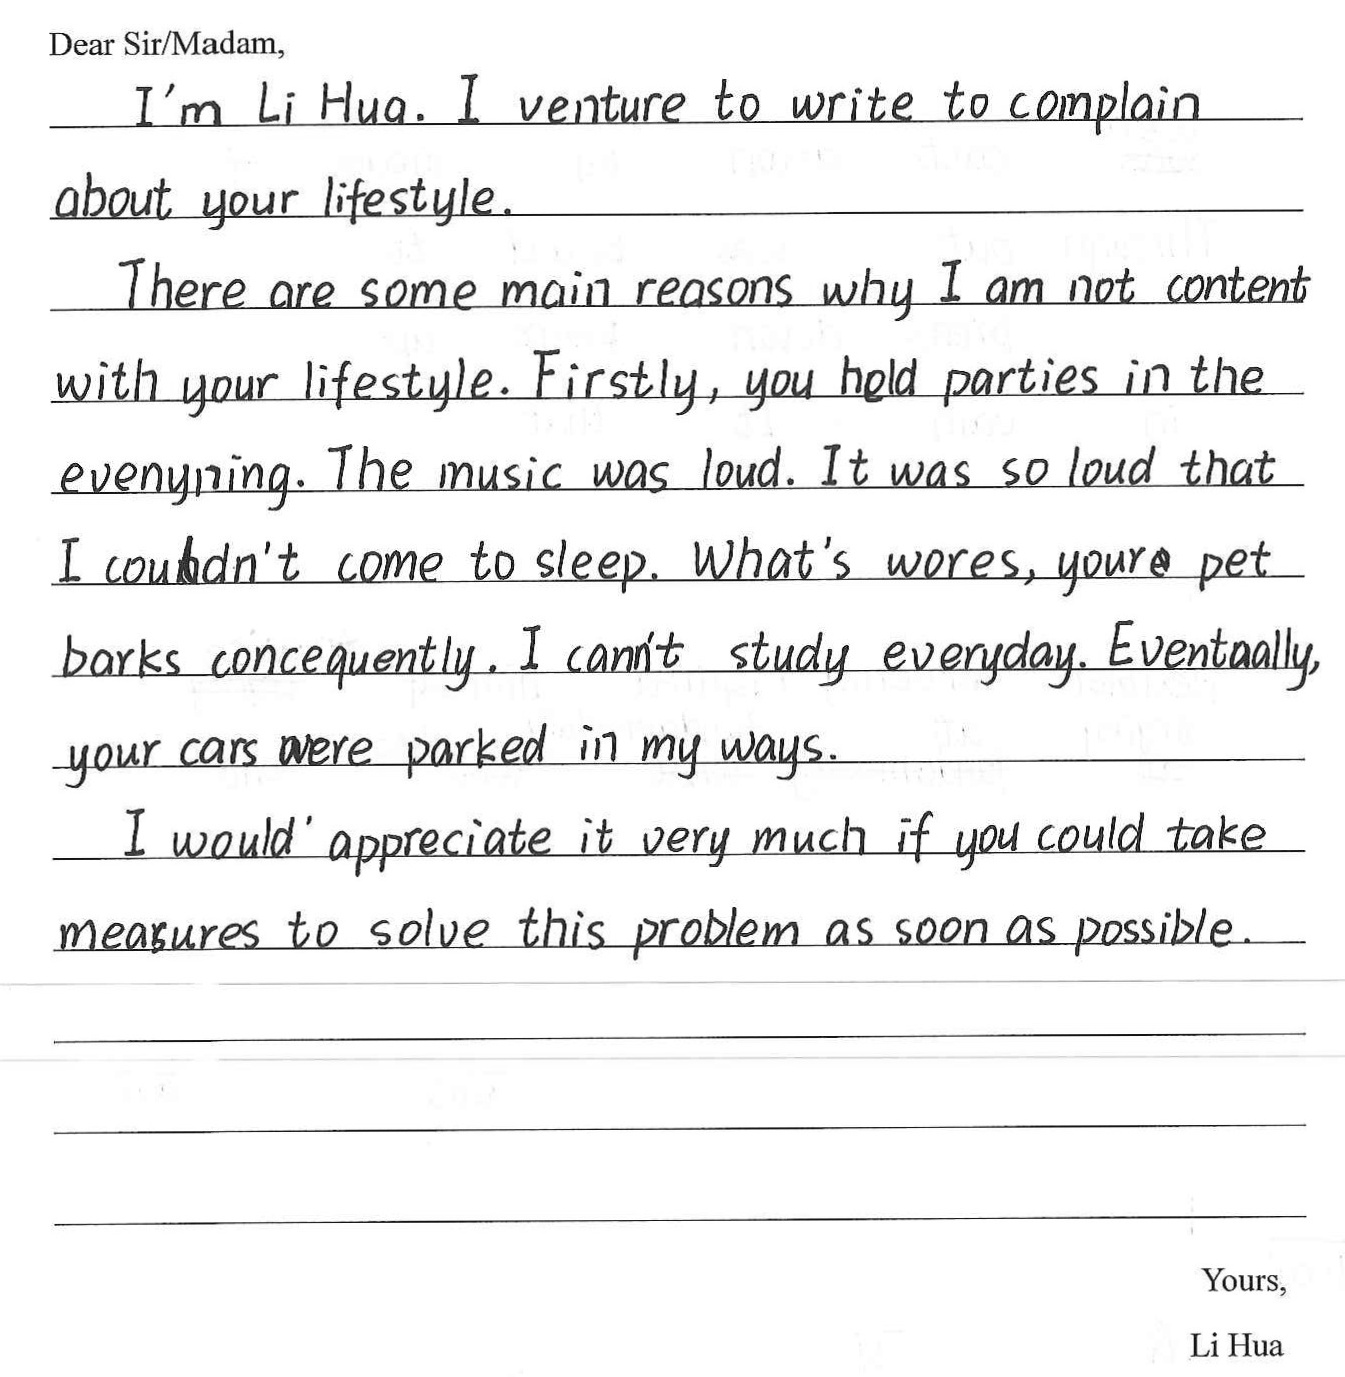 Dear Sir/Madam,
I'm Li Hua. I venture to write to complain
about your lifestyle.
There are some main reasons why I am not content
with your lifestyle. Firstly, you hold parties in the
evenyning. The music was loud. It was so loud that
I couldn't come to sleep. What's wores, youre pet
barks concequently. I cann't study everyday. Eventaally,
your cars were parked in my ways.
I would' appreciate it very much if you could take
measures to solve this problem as soon as possible.
Yours,
Li Hua